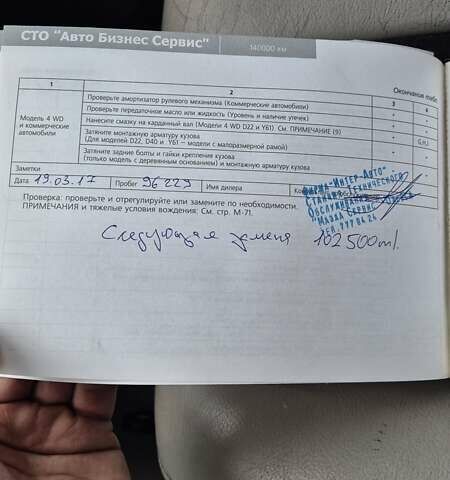 СТО "Авто Бизнес Сервис"
140000 км
Окончание табл.
1 2 3 4
Модель 4 WD и коммерческие автомобили
Проверьте амортизатор рулевого механизма (Коммерческие автомобили)
Проверьте передаточное масло или жидкость (Уровень и наличие утечек)
Нанесите смазку на карданный вал (Модели 4 WD D22 и Y61). См. ПРИМЕЧАНИЕ (9)
G.H.I
Затяните монтажную арматуру кузова
(Для моделей D22, D40 и Y61 – модели с малоразмерной рамой)
Затяните задние болты и гайки крепление кузова
(только модель с деревянным основанием) и монтажную арматуру кузова
Заметки
Дата 19.03.17 Пробег 96229 Имя дилера
Проверка: проверьте и отрегулируйте или замените по необходимости.
ПРИМЕЧАНИЯ и тяжелые условия вождения: См. стр. М-71.
ФИРМА-ИНТЕР-АВТО-
СТАНЦИЯ ТЕХНИЧЕСКОГО
ОБСЛУЖИВАНИЯ
"МАЗДА СЕРВИС"
Следующая замена 102 500 м/.